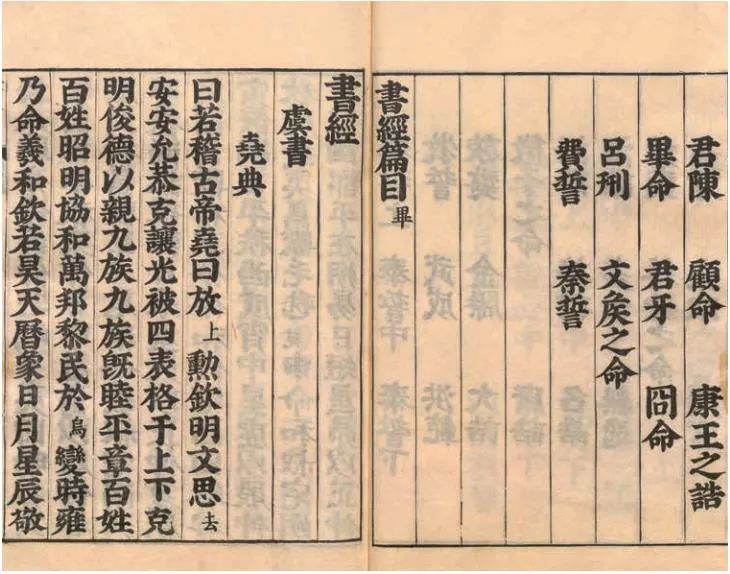 君陳 顧命 康王之誥
畢命 君牙 冏命
呂刑 文矦之命
費誓 秦誓
書經篇目畢
書經
虞書
堯典
曰若稽古帝堯曰放上勲欽明文思去
安安允恭克讓光被四表格于上下克
明俊德以親九族九族旣睦平章百姓
百姓昭明協和萬邦黎民於烏變時雍
乃命羲和欽若昊天曆象日月星辰敬